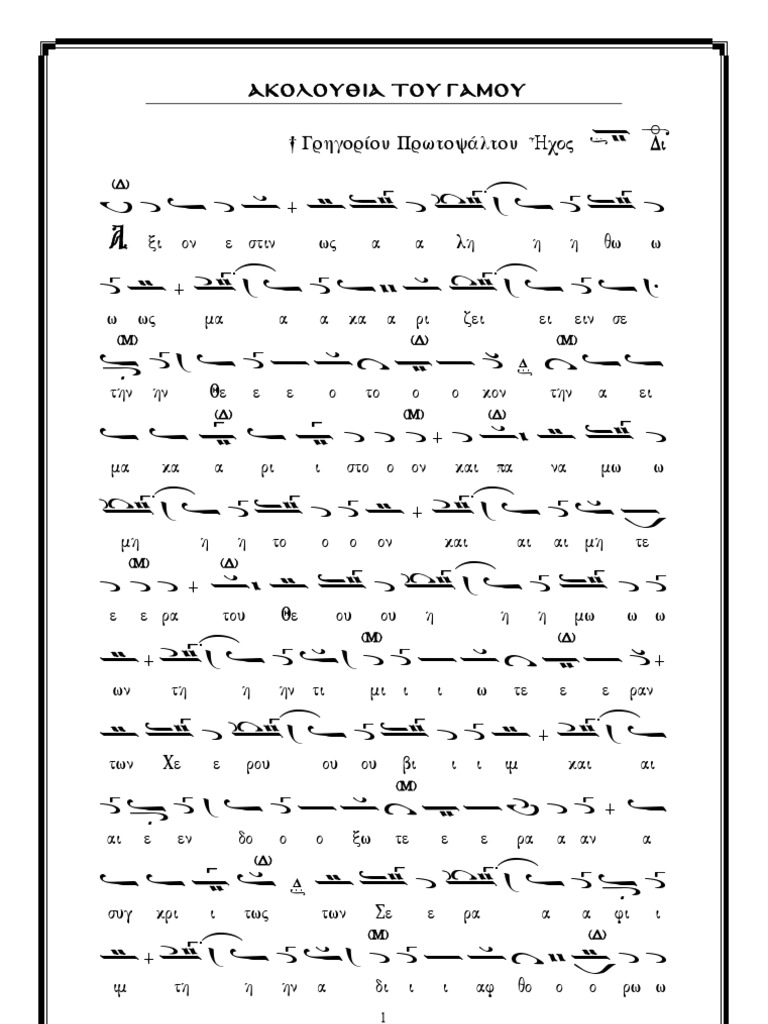 ΑΚΟΛΟΥΘΙΑ ΤΟΥ ΓΑΜΟΥ
† Γρηγορίου Πρωτοψάλτου Ἦχος Δι
(Δ)
Α ξι ον ε στιν ως α α λη η η θω ω
ω ως μα α α κα α ρι ζει ει ειν σε
(Μ) (Δ) (Μ)
την ην Θε ε ε ο το ο ο κον την α ει
(Δ) (Μ) (Δ)
μα κα α ρι ι στο ο ον και πα να μω ω
μη η η το ο ο ον και αι αι μη τε
(Μ) (Δ)
ε ε ρα του Θε ου ου η η η μω ω ω
(Μ) (Δ)
ων τη η ην τι μι ι ι ω τε ε ε ραν
των Χε ε ρου ου ου βι ι ι ιμ και αι
(Μ)
αι ε εν δο ο ο ξω τε ε ε ρα α αν α
(Δ)
συγ κρι ι τως των Σε ε ρα α α φι ι
(Μ) (Δ)
ιμ τη η ην α δι ι ι αφ θο ο ο ρω ω
1